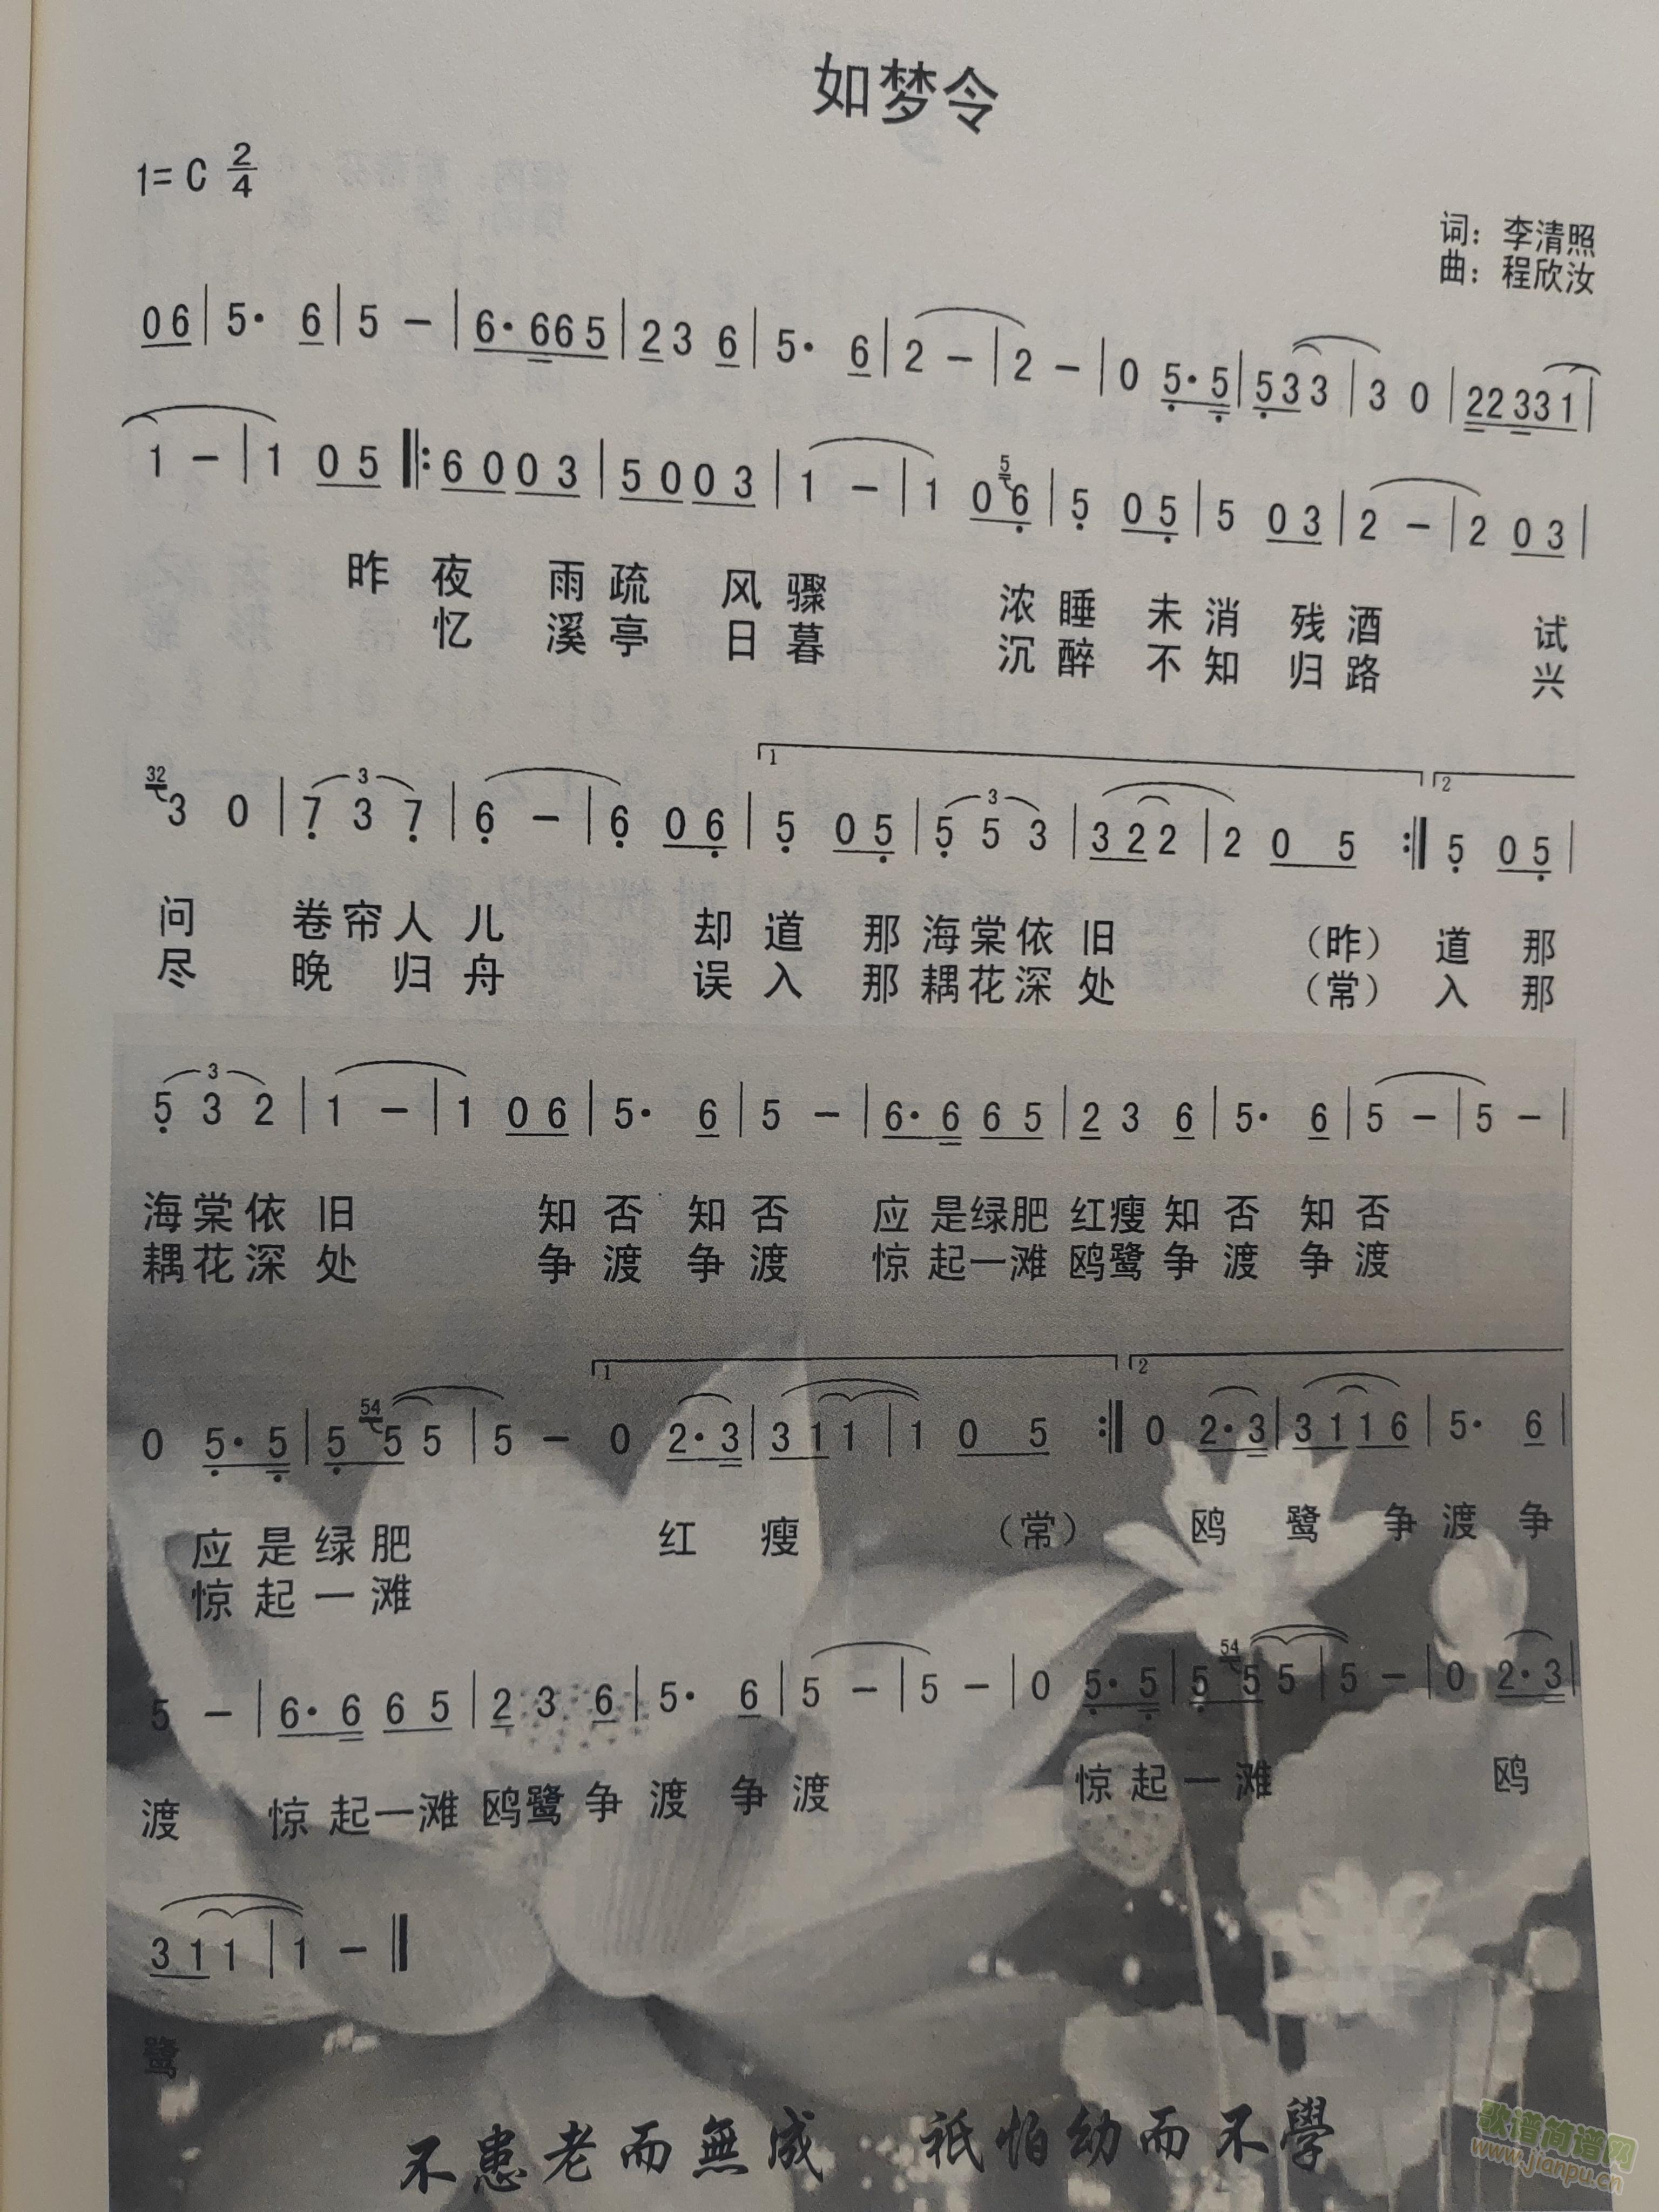 如梦令
1= C 2/4
词：李清照
曲：程欣汝
0 6 | 5· 6 | 5 － | 6· 6 6 5 | 2 3 6 | 5· 6 | 2 － | 2 － | 0 5·5 | 5 3 3 | 3 0 | 2 2 3 3 1 |
1 － | 1 0 5 ‖: 6 0 0 3 | 5 0 0 3 | 1 － | 1 0 5 6 | 5 0 5 | 5 0 3 | 2 － | 2 0 3 |
昨 夜 雨 疏 风 骤 浓 睡 未 消 残 酒 试
忆 溪 亭 日 暮 沉 醉 不 知 归 路 兴
1 2
32 3 0 | 7 3 7 | 6 － | 6 0 6 | 5 0 5 | 5 5 3 | 3 2 2 | 2 0 5 :‖ 5 0 5 |
3 3
问 卷 帘 人 儿 却 道 那 海 棠 依 旧 （昨） 道 那
尽 晚 归 舟 误 入 那 耦 花 深 处 （常） 入 那
3
5 3 2 | 1 － | 1 0 6 | 5· 6 | 5 － | 6· 6 6 5 | 2 3 6 | 5· 6 | 5 － | 5 － |
海 棠 依 旧 知 否 知 否 应 是 绿 肥 红 瘦 知 否 知 否
耦 花 深 处 争 渡 争 渡 惊 起 一 滩 鸥 鹭 争 渡 争 渡
1 2
0 5· 5 | 5 54 5 5 | 5 － 0 2·3 | 3 1 1 | 1 0 5 :‖ 0 2·3 | 3 1 1 6 | 5· 6 |
应 是 绿 肥 红 瘦 （常） 鸥 鹭 争 渡 争
惊 起 一 滩
5 － | 6· 6 6 5 | 2 3 6 | 5· 6 | 5 － | 5 － | 0 5· 5 | 5 54 5 5 | 5 － | 0 2·3 |
渡 惊 起 一 滩 鸥 鹭 争 渡 争 渡 惊 起 一 滩 鸥
3 1 1 | 1 － ‖
鹭
不患老而無成 祇怕幼而不學
歌谱简谱网
www.jianpu.cn